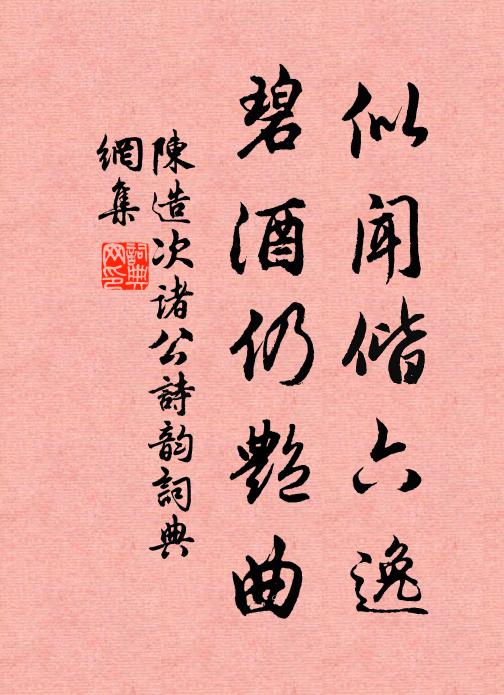 似闻偕六逸
碧酒仍艷曲
陳造次诸公詩韵詞典
網集
詞典网印